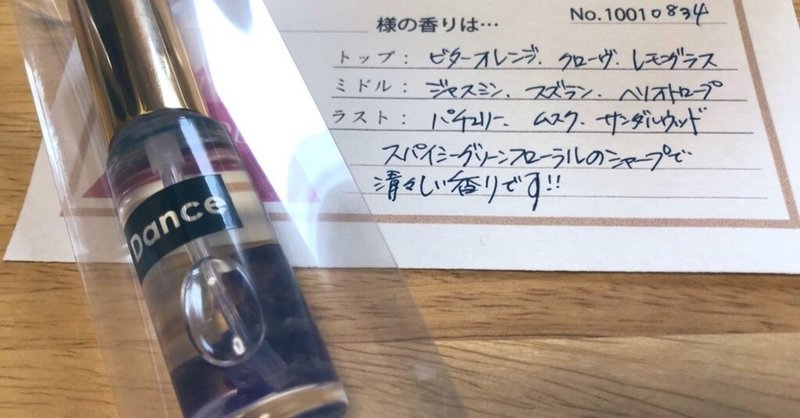 様の香りは…
No.10010834
トップ: ビターオレンジ、クローヴ、レモングラス
ミドル: ジャスミン、スズラン、ヘリオトロープ
ラスト: パチュリー、ムスク、サンダルウッド
スパイシーグリーンフローラルのシャープで
清々しい香りです!!
Dance